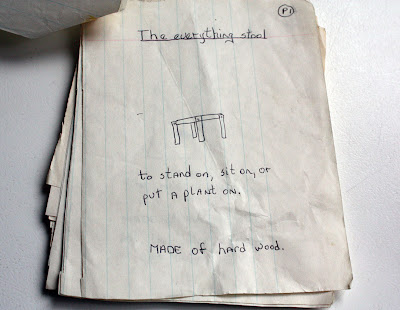 P1
The everything stool
to stand on, sit on, or
put a plant on.
MADE of hard wood.